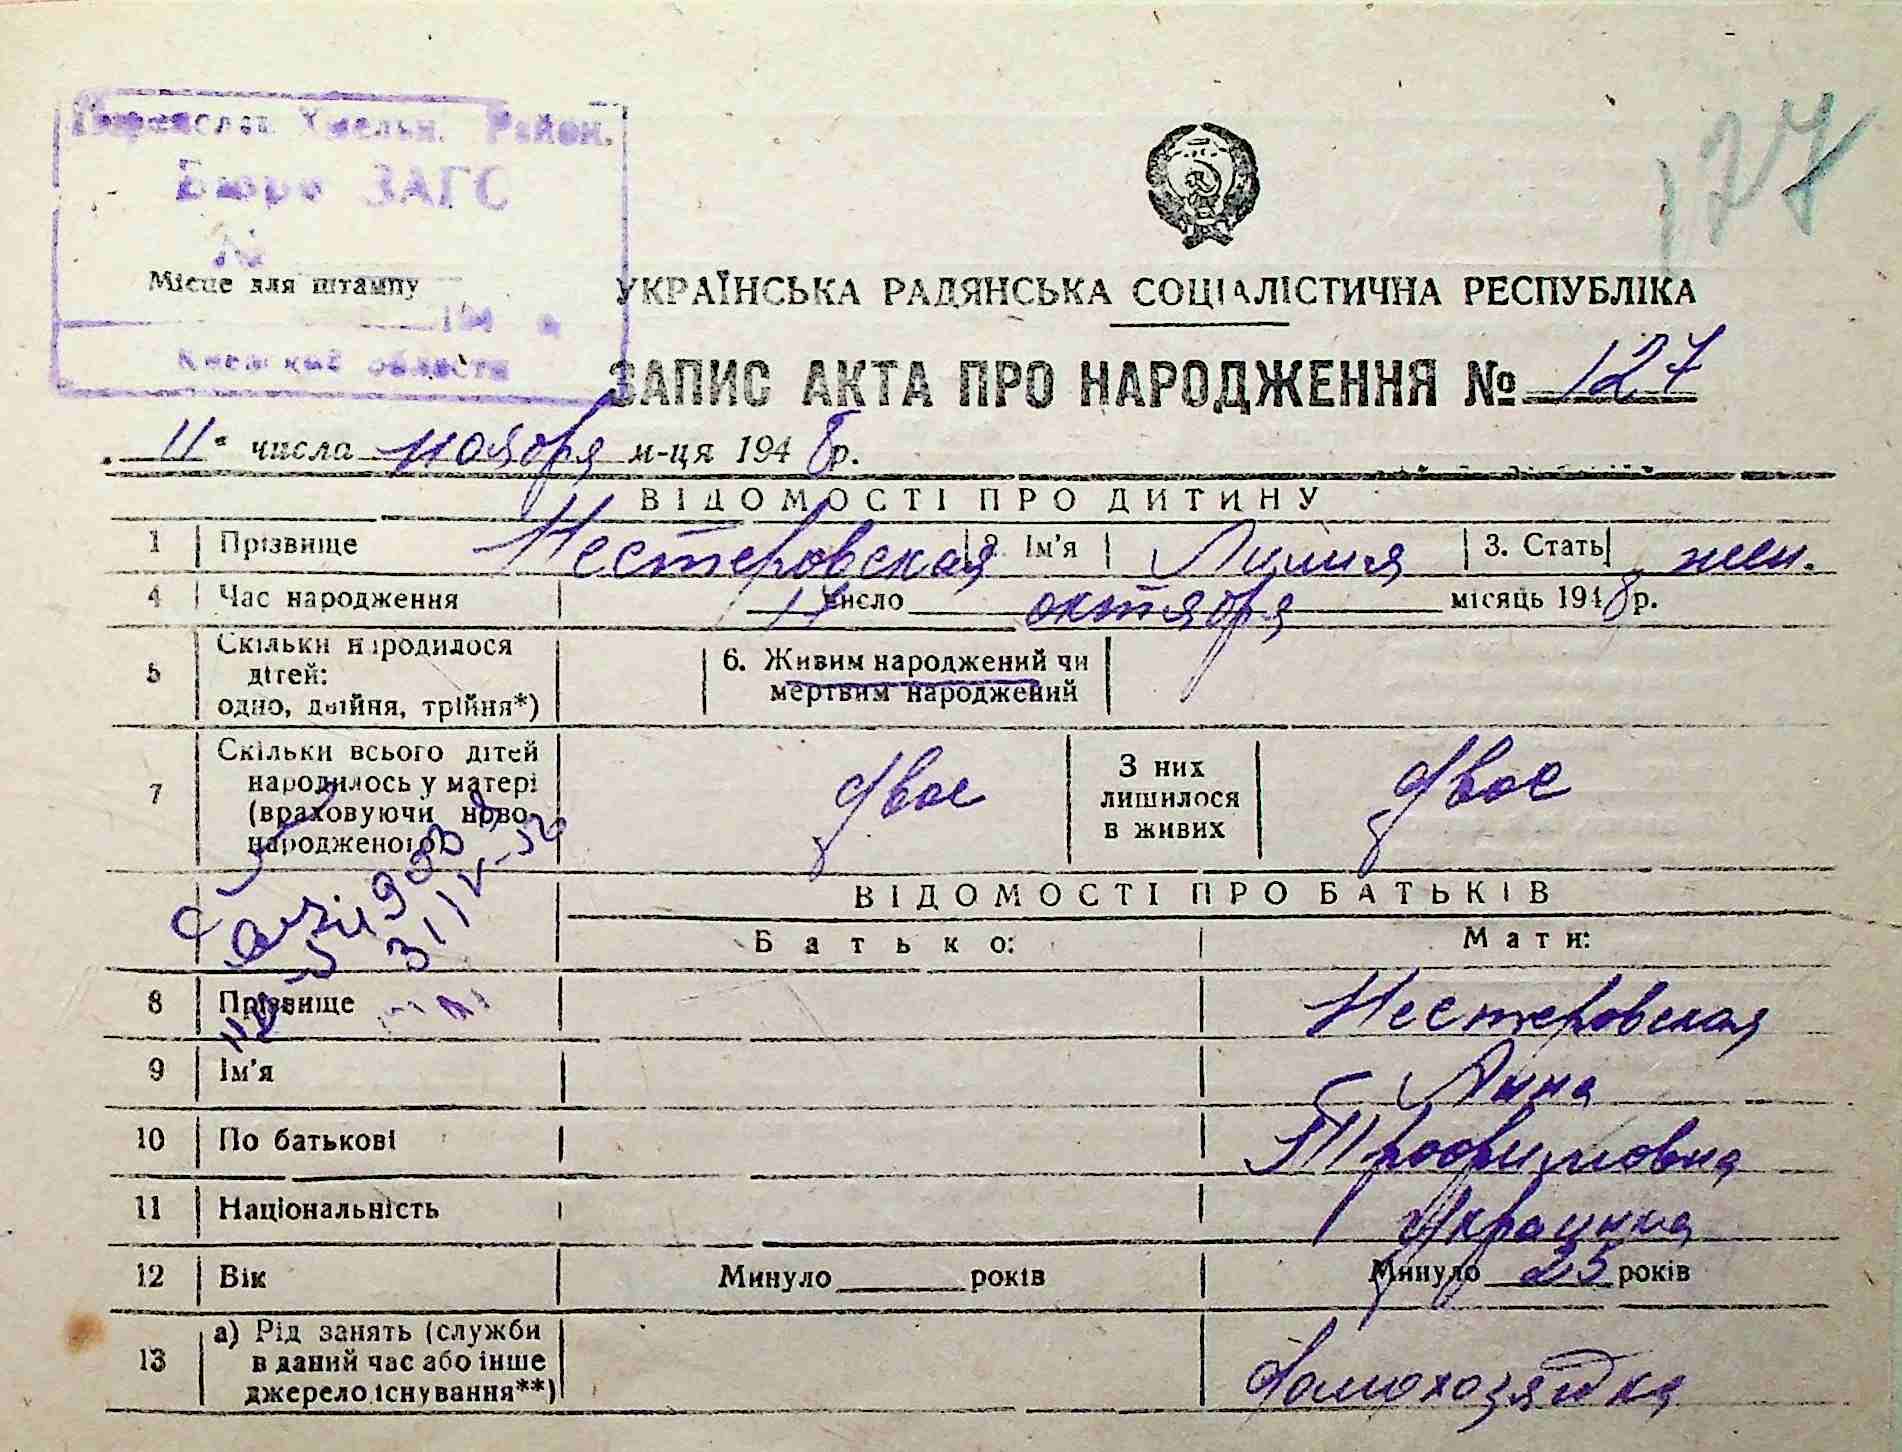 127
Переяслав Хмельн. Район.
Бюро ЗАГС
№
Місце для штампу
194
Киевской области
УКРАЇНСЬКА РАДЯНСЬКА СОЦІАЛІСТИЧНА РЕСПУБЛІКА
ЗАПИС АКТА ПРО НАРОДЖЕННЯ № 127
"11" числа ноября м-ця 1948 р.
ВІДОМОСТІ ПРО ДИТИНУ
1 Прізвище Нестеровская 2. Ім'я Лилия 3. Стать жен.
4 Час народження 14 число октября місяць 1948 р.
5 Скільки народилося
дітей:
одно, двійня, трійня*)
6. Живим народжений чи
мертвим народжений
7 Скільки всього дітей
народилось у матері
(враховуючи ново-
народженого)
двое
З них
лишилося
в живих
двое
ВІДОМОСТІ ПРО БАТЬКІВ
Батько: Мати:
8 Прізвище Нестеровская
9 Ім'я Анна
10 По батькові Трофимовна
11 Національність Украинка
12 Вік Минуло років Минуло 25 років
13 а) Рід занять (служби
в даний час або інше
джерело існування**)
домохозяйка